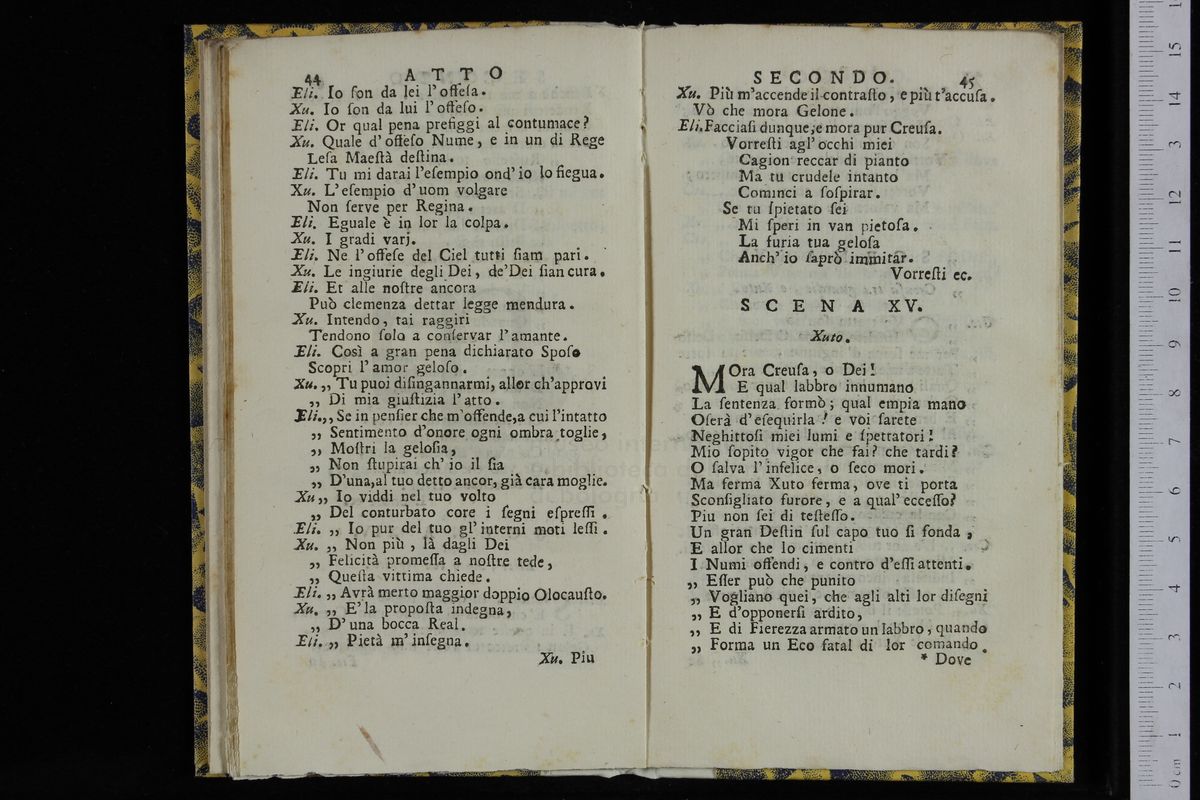 44 ATTO
Eli. Io ſon da lei l'offeſa.
Xu. Io ſon da lui l'offeſo.
Eli. Or qual pena prefiggi al contumace?
Xu. Quale d'offeſo Nume, e in un di Rege
Leſa Maeſtà deſtina.
Eli. Tu mi darai l'eſempio ond'io lo ſiegua.
Xu. L'eſempio d'uom volgare
Non ſerve per Regina.
Eli. Eguale è in lor la colpa.
Xu. I gradi varj.
Eli. Ne l'offeſe del Ciel tutti ſiam pari.
Xu. Le ingiurie degli Dei, de'Dei ſian cura.
Eli. Et alle noſtre ancora
Può clemenza dettar legge mendura.
Xu. Intendo, tai raggiri
Tendono ſolo a conſervar l'amante.
Eli. Così a gran pena dichiarato Spoſo
Scopri l'amor geloſo.
Xu. ,, Tu puoi diſingannarmi, allor ch'approvi
,, Di mia giuſtizia l'atto.
Eli. ,, Se in penſier che m'offende, a cui l'intatto
,, Sentimento d'onore ogni ombra toglie,
,, Moſtri la geloſia,
,, Non ſtupirai ch'io il ſia
,, D'una, al tuo detto ancor, già cara moglie.
Xu ,, Io viddi nel tuo volto
,, Del conturbato core i ſegni eſpreſſi.
Eli. ,, Io pur del tuo gl'interni moti leſſi.
Xu. ,, Non più, là dagli Dei
,, Felicità promeſſa a noſtre tede,
,, Queſta vittima chiede.
Eli. ,, Avrà merto maggior doppio Olocauſto.
Xu. ,, E'la propoſta indegna,
,, D'una bocca Real.
Eli. ,, Pietà m'inſegna.
Xu. Piu
SECONDO. 45
Xu. Più m'accende il contraſto, e più t'accuſa.
Vò che mora Gelone.
Eli. Facciaſi dunque, e mora pur Creuſa.
Vorreſti agl'occhi miei
Cagion reccar di pianto
Ma tu crudele intanto
Cominci a ſoſpirar.
Se tu ſpietato ſei
Mi ſperi in van pietoſa.
La furia tua geloſa
Anch'io ſaprò immitar.
Vorreſti ec.
SCENA XV.
Xuto.
MOra Creuſa, o Dei!
E qual labbro innumano
La ſentenza formò; qual empia mano
Oſerà d'eſequirla? e voi ſarete
Neghittoſi miei lumi e ſpettatori!
Mio ſopito vigor che fai? che tardi?
O ſalva l'infelice, o ſeco mori.
Ma ferma Xuto ferma, ove ti porta
Sconſigliato furore, e a qual'ecceſſo?
Piu non ſei di teſteſſo.
Un gran Deſtin ſul capo tuo ſi fonda,
E allor che lo cimenti
I Numi offendi, e contro d'eſſi attenti.
,, Eſſer può che punito
,, Vogliano quei, che agli alti lor diſegni
,, E d'opponerſi ardito,
,, E di Fierezza armato un labbro, quando
,, Forma un Eco fatal di lor comando.
* Dove